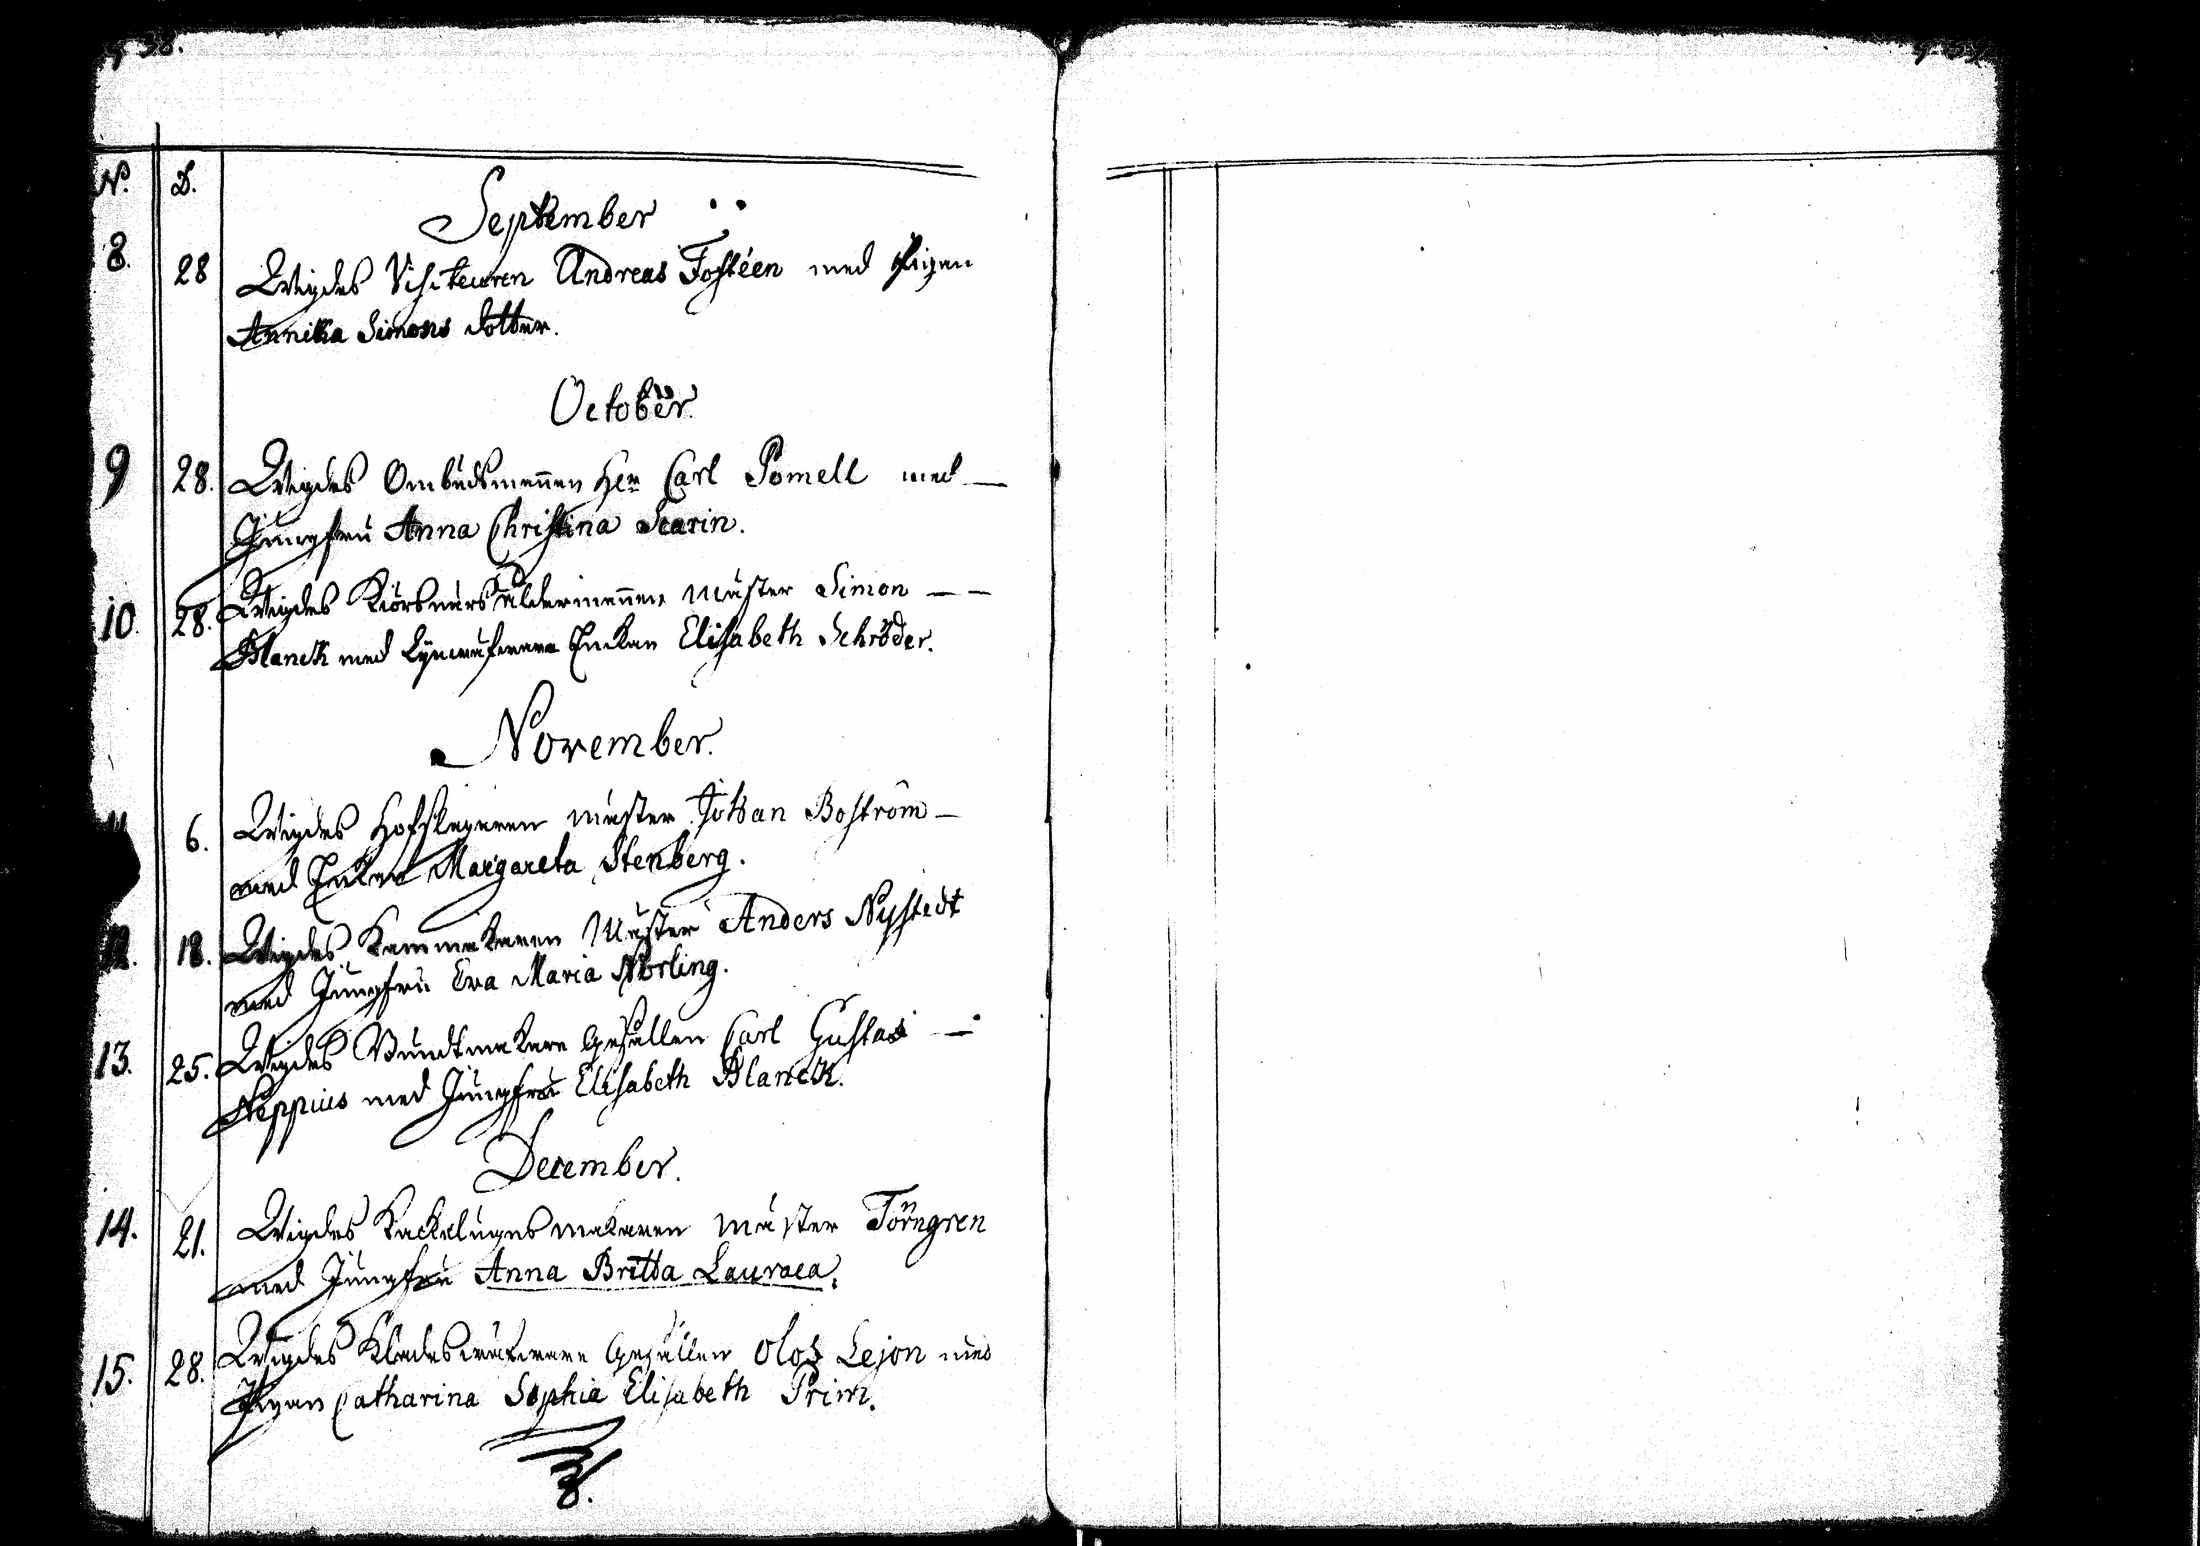 N. D.
September
8. 28 Wigdes Visiteuren Andreas Fostéen med Pigan
Annika Simons dotter.
October.
9 28. Wigdes Ombudsmannen Herr Carl Pomell med —
Jungfru Anna Christina Scarin.
10. 28. Wigdes Körsnärs åldermannen Mäster Simon — —
Blanck med Enkan Elisabeth Schröder.
November.
6. Wigdes Hofslagaren Mäster Johan Boström —
med Enkan Margareta Stenberg.
12. 18. Wigdes Kammakaren Mäster Anders Nystedt
med Jungfru Eva Maria Norling.
13. 25. Wigdes Bundtmakare Gesällen Carl Gustav —
Neppius med Jungfru Elisabeth Blanck.
December.
14. 21. Wigdes Kackelugnsmakaren Mäster Törngren
med Jungfru Anna Britta Lauraea.
15. 28. Wigdes Gesällen Olof Lejon med
Pigan Catharina Sophia Elisabeth Prim.